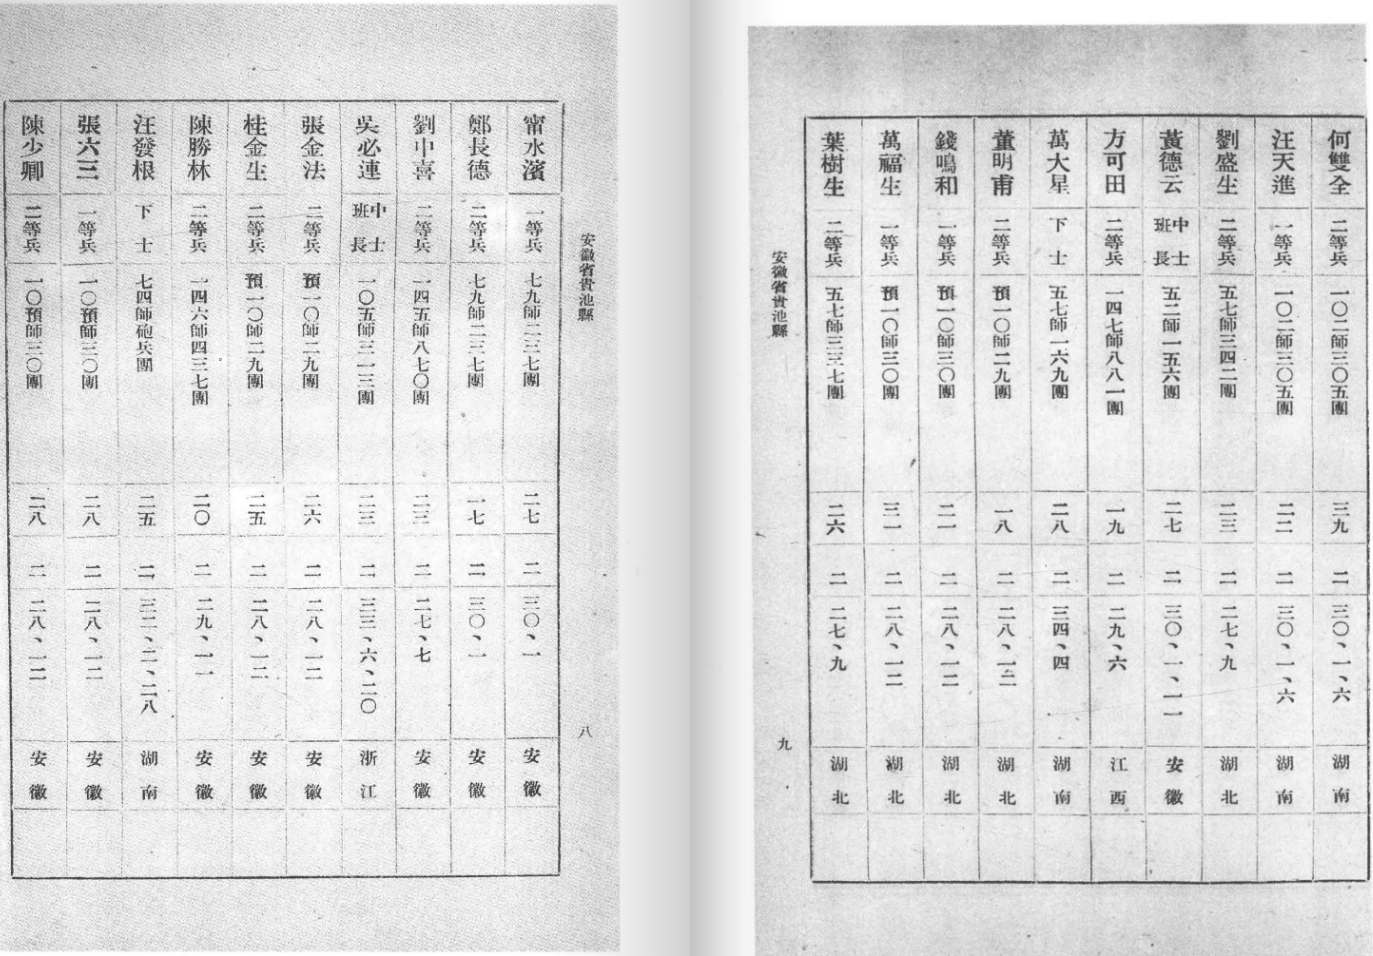 安徽省貴池縣 八
甯水濱 一等兵 七九師二三七團 二七 二 三〇、一 安徽
鄭長德 二等兵 七九師二三七團 一七 二 三〇、一 安徽
劉中喜 二等兵 一四五師八七〇團 二三 二 二七、七 安徽
吳必連 中士班長 一〇五師三一三團 二三 二 三三、六、二〇 浙江
張金法 二等兵 預一〇師二九團 二六 二 二八、一二 安徽
桂金生 二等兵 預一〇師二九團 二五 二 二八、一二 安徽
陳勝林 二等兵 一四六師四三七團 二〇 二 二九、一一 安徽
汪發根 下士 七四師砲兵團 二五 二 三二、二、二八 湖南
張六三 一等兵 一〇預師三〇團 二八 二 二八、一二 安徽
陳少卿 二等兵 一〇預師三〇團 二八 二 二八、一二 安徽
何雙全 二等兵 一〇二師三〇五團 三九 二 三〇、一、六 湖南
汪天進 一等兵 一〇二師三〇五團 二二 二 三〇、一、六 湖南
劉盛生 二等兵 五七師三四二團 二三 二 二七、九 湖北
黃德云 中士班長 五二師一五六團 二七 二 三〇、一、一一 安徽
方可田 二等兵 一四七師八八一團 一九 二 二九、六 江西
萬大星 下士 五七師一六九團 二八 二 三四、四 湖南
董明甫 二等兵 預一〇師二九團 一八 二 二八、一二 湖北
錢鳴和 一等兵 預一〇師三〇團 二一 二 二八、一二 湖北
萬福生 一等兵 預一〇師三〇團 三一 二 二八、一二 湖北
葉樹生 二等兵 五七師三三七團 二六 二 二七、九 湖北
安徽省貴池縣 九